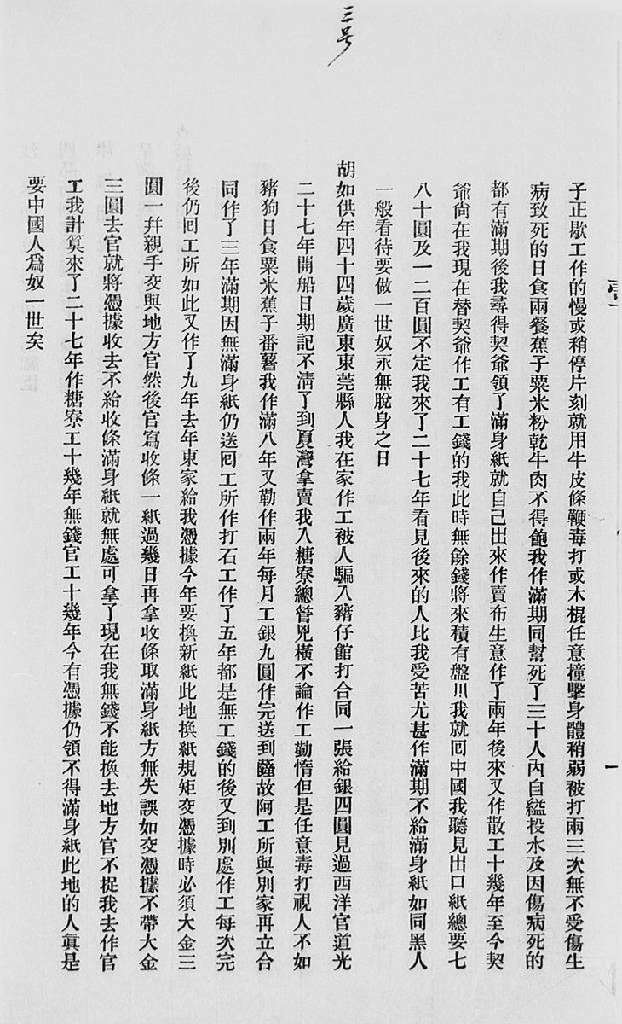 三号
子正歇工作的慢或稍停片刻就用牛皮條鞭毒打或木棍任意撞擊身體稍弱被打兩三次無不受傷生
病致死的日食兩餐蕉子粟米粉乾牛肉不得飽我作滿期同幫死了三十人內自縊投水及因傷病死的
都有滿期後我尋得契爺領了滿身紙就自己出來作賣布生意作了兩年後來又作散工十幾年至今契
爺尙在我現在替契爺作工有工錢的我此時無餘錢將來積有盤川我就囘中國我聽見出口紙總要七
八十圓及一二百圓不定我來了二十七年看見後來的人比我受苦尤甚作滿期不給滿身紙如同黑人
一般看待要做一世奴永無脫身之日
胡如供年四十四歲廣東東莞縣人我在家作工被人騙入豬仔館打合同一張給銀四圓見過西洋官道光
二十七年開船日期記不淸了到夏灣拿賣我入糖寮總管兇橫不論作工勤惰但是任意毒打視人不如
豬狗日食粟米蕉子番薯我作滿八年又勒作兩年每月工銀九圓作完送到薩故阿工所與別家再立合
同作了三年滿期因無滿身紙仍送囘工所作打石工作了五年都是無工錢的後又到別處作工每次完
後仍囘工所如此又作了九年去年東家給我憑據今年要換新紙此地換紙規矩交憑據時必須大金三
圓一幷親手交與地方官然後官寫收條一紙過幾日再拿收條取滿身紙方無失誤如交憑據不帶大金
三圓去官就將憑據收去不給收條滿身紙就無處可拿了現在我無錢不能換去地方官不捉我去作官
工我計算來了二十七年作糖寮工十幾年無錢官工十幾年今有憑據仍領不得滿身紙此地的人眞是
要中國人爲奴一世矣